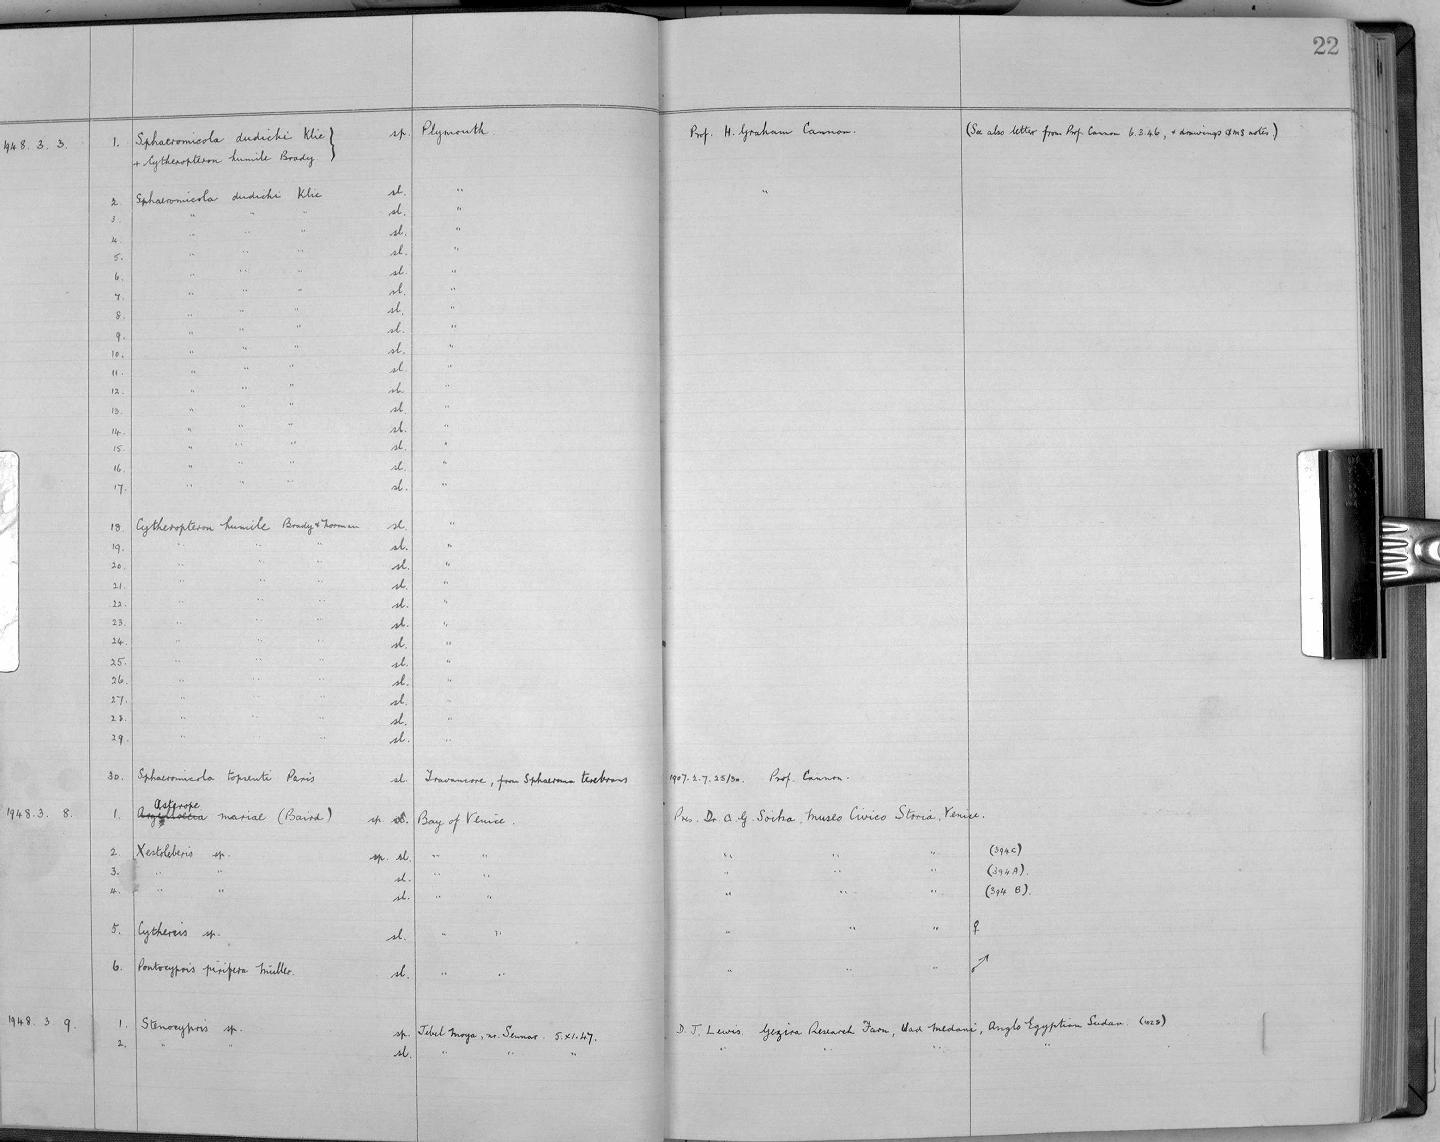 22
1948. 3. 3. 1. Sphaeromicola dudichi Klie } sp. Plymouth Prof. H. Graham Cannon. (See also letter from Prof. Cannon 6.3.46, + drawings & MS notes.)
+ Cytheropteron humile Brady
2. Sphaeromicola dudichi Klie sl. " "
3. " " " sl. "
4. " " " sl. "
5. " " " sl. "
6. " " " sl. "
7. " " " sl. "
8. " " " sl. "
9. " " " sl. "
10. " " " sl. "
11. " " " sl. "
12. " " " sl. "
13. " " " sl. "
14. " " " sl. "
15. " " " sl. "
16. " " " sl. "
17. " " " sl. "
18. Cytheropteron humile Brady & Norman sl. "
19. " " " sl. "
20. " " " sl. "
21. " " " sl. "
22. " " " sl. "
23. " " " sl. "
24. " " " sl. "
25. " " " sl. "
26. " " " sl. "
27. " " " sl. "
28. " " " sl. "
29. " " " sl. "
30. Sphaeromicola topsenti Paris sl. Travancore, from Sphaeroma terebrans 1907.2.7.25/30. Prof. Cannon.
Asterope
1948. 3. 8. 1. mariae (Baird) sp. sl. Bay of Venice. Pres. Dr. A. G. Soika, Museo Civico Storia, Venice.
2. Xestoleberis sp. sp. sl. " " " " " (394C)
3. " " sl. " " " " " (394A).
4. " " sl. " " " " " (394 B).
5. Cythereis sp. sl. " " " " " ♀
6. Pontocypris pirifera Müller. sl. " " " " " ♂
1948. 3. 9. 1. Stenocypris sp. sp. Jebel Moya, nr. Sennar. 5.XI.47. D. J. Lewis. Gezira Research Farm, Wad Medani, Anglo Egyptian Sudan. (1025)
2. " " sl. " " " " " " "